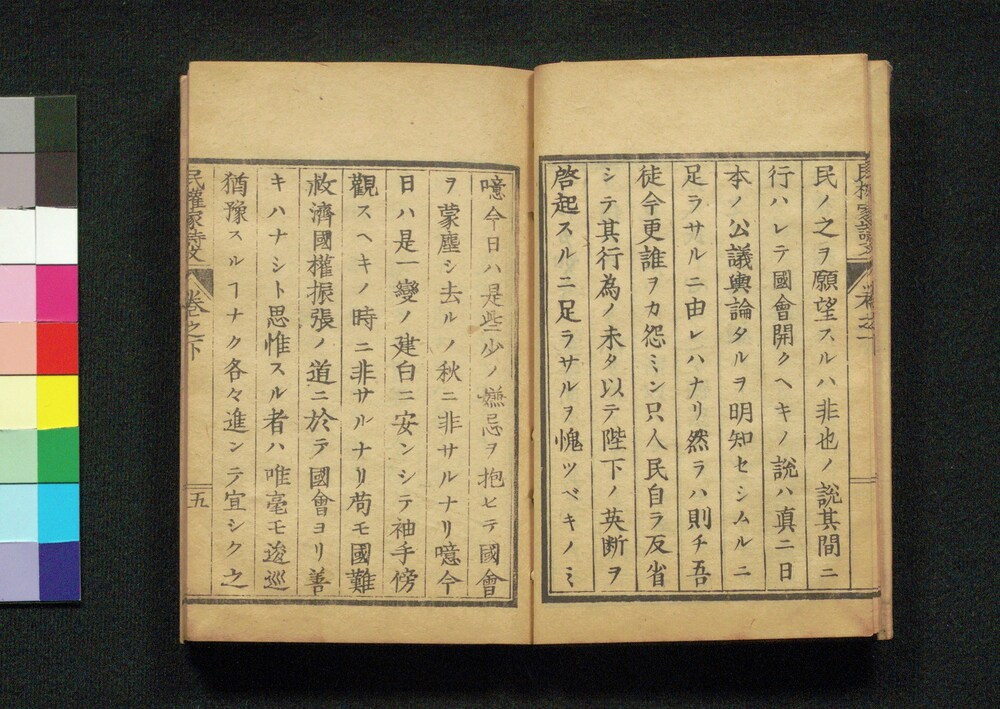 民ノ之ヲ願望スルハ非也ノ說其間ニ
行ハレテ國會開クヘキノ說ハ眞ニ日
本ノ公議輿論タルヲ明知セシムルニ
足ラサルニ由レハナリ然ラハ則チ吾
徒今更誰ヲカ怨ミン只人民自ラ反省
シテ其行為ノ未タ以テ陛下ノ英断ヲ
啓起スルニ足ラサルヲ愧ツベキノミ
噫今日ハ是些少ノ嫌忌ヲ抱ヒテ國會
ヲ蒙塵シ去ルノ秋ニ非サルナリ噫今
日ハ是一變ノ建白ニ安ンシテ袖手傍
觀スヘキノ時ニ非サルナリ苟モ國難
救濟國權振張ノ道ニ於テ國會ヨリ善
キハナシト思惟スル者ハ唯毫モ逡巡
猶豫スルヿナク各々進ンテ宜シク之
民權家詩文
卷之下
五